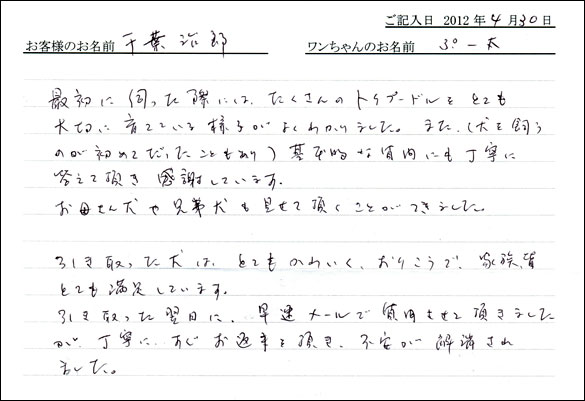 ご記入日 2012年4月30日
お客様のお名前 千葉治郎 ワンちゃんのお名前 ぷー太
最初に伺った際には、たくさんのトイプードルをとても
大切に育てている様子がよくわかりました。また、(犬を飼う
のが初めてだったこともあり)基本的な質問にも丁寧に
答えて頂き感謝しています。
お母さん犬や兄弟犬も見せて頂くことができました。
引き取った犬は、とてもかわいく、おりこうで、家族皆
とても満足しています。
引き取った翌日に、早速メールで質問させて頂きました
が、丁寧にお返事を頂き、不安が解消され
ました。